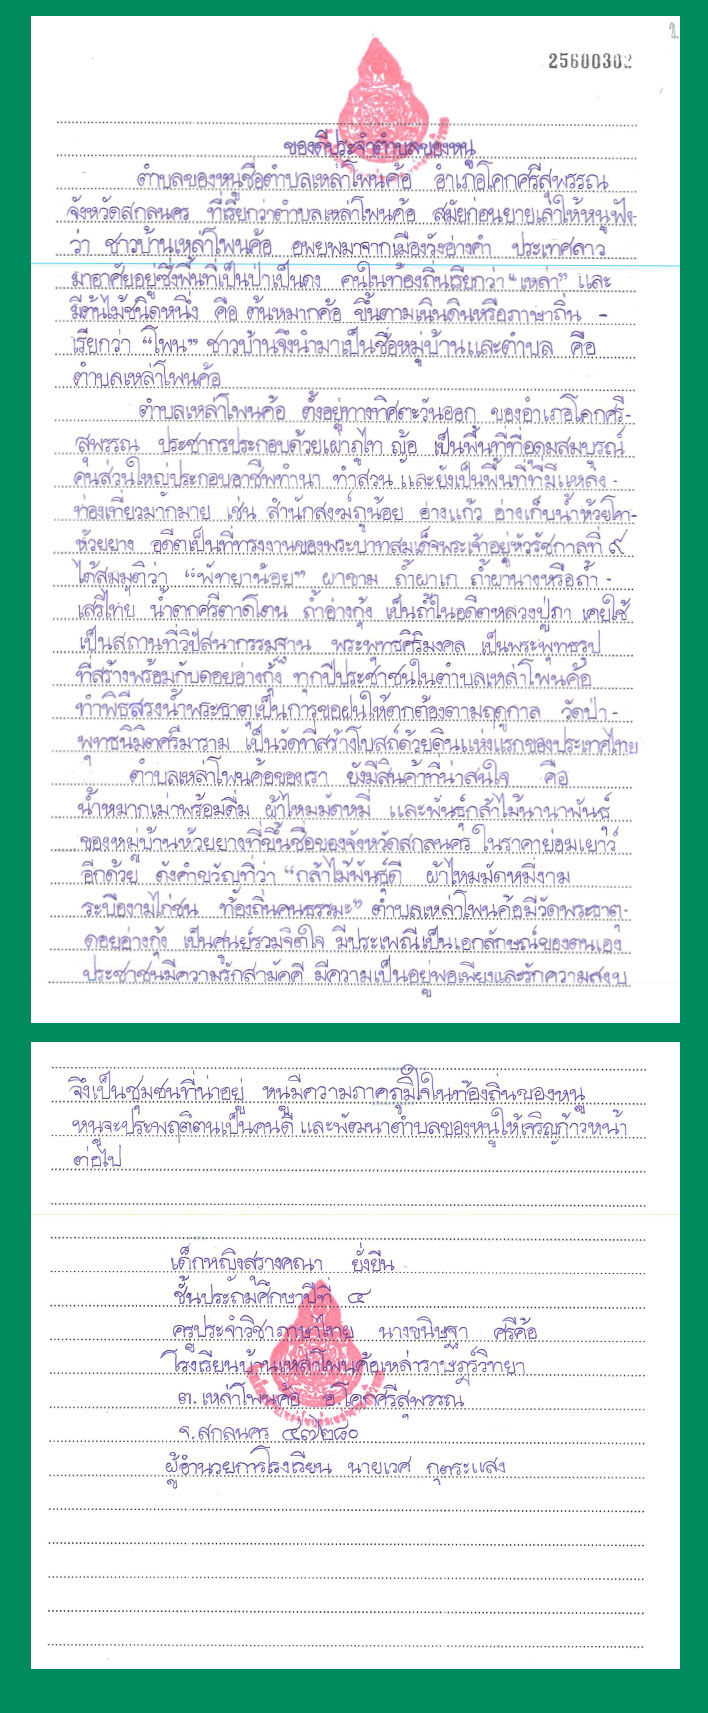 25600302
ของดีประจำตำบลของหนู
ตำบลของหนูชื่อตำบลเหล่าโพนค้อ อำเภอโคกศรีสุพรรณ
จังหวัดสกลนคร ที่เรียกว่าตำบลเหล่าโพนค้อ สมัยก่อนยายเล่าให้หนูฟัง
ว่า ชาวบ้านเหล่าโพนค้อ อพยพมาจากเมืองวังอ่างคำ ประเทศลาว
มาอาศัยอยู่ซึ่งพื้นที่เป็นป่าเป็นดง คนในท้องถิ่นเรียกว่า "เหล่า" และ
มีต้นไม้ชนิดหนึ่ง คือ ต้นหมากค้อ ขึ้นตามเนินดินหรือภาษาถิ่น -
เรียกว่า "โพน" ชาวบ้านจึงนำมาเป็นชื่อหมู่บ้านและตำบล คือ
ตำบลเหล่าโพนค้อ
ตำบลเหล่าโพนค้อ ตั้งอยู่ทางทิศตะวันออก ของอำเภอโคกศรี-
สุพรรณ ประชากรประกอบด้วยเผ่าภูไท ญ้อ เป็นพื้นที่ที่อุดมสมบูรณ์
คนส่วนใหญ่ประกอบอาชีพทำนา ทำสวน และยังเป็นพื้นที่ที่มีแหล่ง -
ท่องเที่ยวมากมาย เช่น สำนักสงฆ์ภูน้อย อ่างแก้ว อ่างเก็บน้ำห้วยโท-
ห้วยยาง อดีตเป็นที่ทรงงานของพระบาทสมเด็จพระเจ้าอยู่หัวรัชกาลที่ ๙
ได้สมมุติว่า "พัทยาน้อย" ผาขาม ถ้ำผาเก ถ้ำผานางหรือถ้ำ -
เสรีไทย น้ำตกศรีตาดโตน ถ้ำอ่างกุ้ง เป็นถ้ำในอดีตหลวงปู่ภา เคยใช้
เป็นสถานที่วิปัสนากรรมฐาน พระพุทธศิริมงคล เป็นพระพุทธรูป
ที่สร้างพร้อมกับดอยอ่างกุ้ง ทุกปีประชาชนในตำบลเหล่าโพนค้อ
ทำพิธีสรงน้ำพระธาตุเป็นการขอฝนให้ตกต้องตามฤดูกาล วัดป่า -
พุทธนิมิตศรีมาราม เป็นวัดที่สร้างโบสถ์ด้วยดินแห่งแรกของประเทศไทย
ตำบลเหล่าโพนค้อของเรา ยังมีสินค้าที่น่าสนใจ คือ
น้ำหมากเม่าพร้อมดื่ม ผ้าไหมมัดหมี่ และพันธุ์กล้าไม้นานาพันธุ์
ของหมู่บ้านห้วยยางที่ขึ้นชื่อของจังหวัดสกลนคร ในราคาย่อมเยาว์
อีกด้วย ดังคำขวัญที่ว่า "กล้าไม้พันธุ์ดี ผ้าไหมมัดหมี่งาม
ระบืองามไก่ชน ท้องถิ่นคนธรรมะ" ตำบลเหล่าโพนค้อมีวัดพระธาตุ-
ดอยอ่างกุ้ง เป็นศูนย์รวมจิตใจ มีประเพณีเป็นเอกลักษณ์ของตนเอง
ประชาชนมีความรักสามัคคี มีความเป็นอยู่พอเพียงและรักความสงบ
จึงเป็นชุมชนที่น่าอยู่ หนูมีความภาคภูมิใจในท้องถิ่นของหนู
หนูจะประพฤติตนเป็นคนดี และพัฒนาตำบลของหนูให้เจริญก้าวหน้า
ต่อไป
เด็กหญิงสรางคณา ยั่งยืน
ชั้นประถมศึกษาปีที่ ๔
ครูประจำวิชาภาษาไทย นางขนิษฐา ศรีค้อ
โรงเรียนบ้านเหล่าโพนค้อเหล่าราษฎร์วิทยา
ต.เหล่าโพนค้อ อ.โคกศรีสุพรรณ
จ.สกลนคร ๔๗๒๘๐
ผู้อำนวยการโรงเรียน นายเวศ กุตระแสง